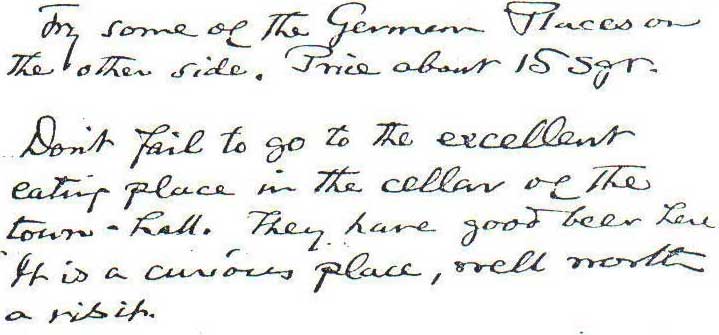 Try some of the German Places on
the other side. Price about 15 Sgr.
Don't fail to go to the excellent
eating place in the cellar of the
town-hall. They have good beer here
It is a curious place, well worth
a visit.